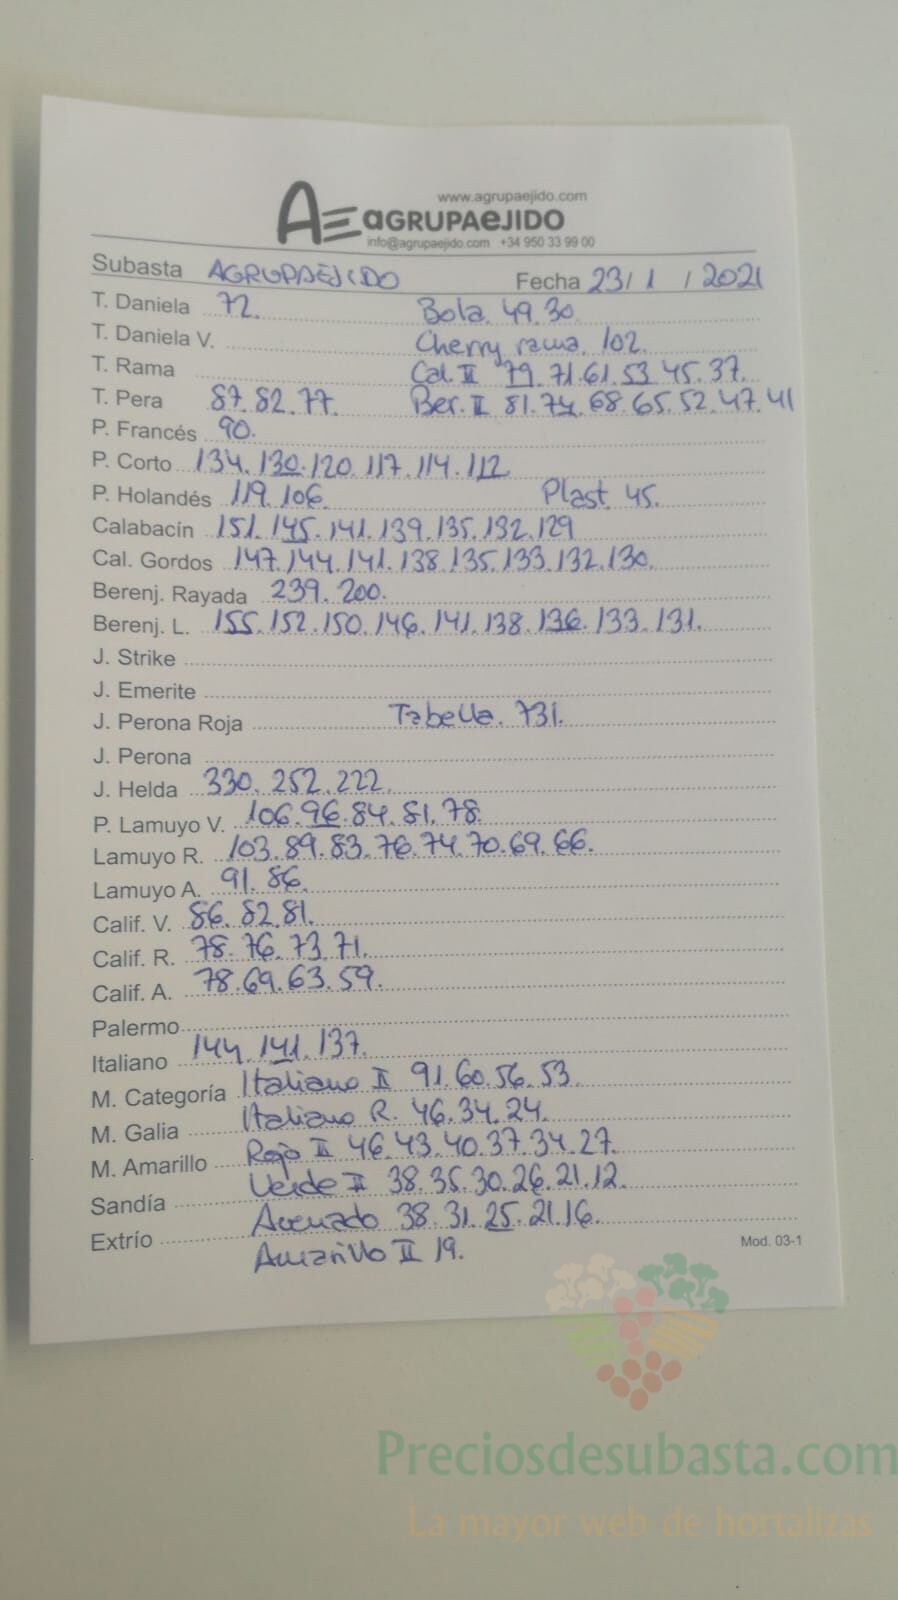 www.agrupaejido.com
AE AGRUPAEJIDO
info@agrupaejido.com +34 950 33 99 00
Subasta AGRUPAEJIDO Fecha 23/1/2021
T. Daniela 72. Bola. 49.30
T. Daniela V. Cherry rama. 102.
T. Rama Cal. II 79.71.61.53.45.37.
T. Pera 87.82.77. Ber. II 81.74.68.65.52.47.41
P. Francés 90.
P. Corto 134.130.120.117.114.112
P. Holandés 119.106. Plast. 45.
Calabacín 151.145.141.139.135.132.129
Cal. Gordos 147.144.141.138.135.133.132.130.
Berenj. Rayada 239.200.
Berenj. L. 155.152.150.146.141.138.136.133.131.
J. Strike
J. Emerite
J. Perona Roja Tabella. 731.
J. Perona
J. Helda 330.252.222.
P. Lamuyo V. 106.96.84.81.78.
Lamuyo R. 103.89.83.76.74.70.69.66.
Lamuyo A. 91.86.
Calif. V. 86.82.81.
Calif. R. 78.76.73.71.
Calif. A. 78.69.63.59.
Palermo
Italiano 144.141.137.
M. Categoría Italiano II 91.60.56.53.
M. Galia Italiano R. 46.34.24.
M. Amarillo Rojo II 46.43.40.37.34.27.
Sandía Verde II 38.35.30.26.21.12.
Extrío Asurado 38.31.25.21.16.
Amarillo II 19.
Mod. 03-1
Preciosdesubasta.com
La mayor web de hortalizas